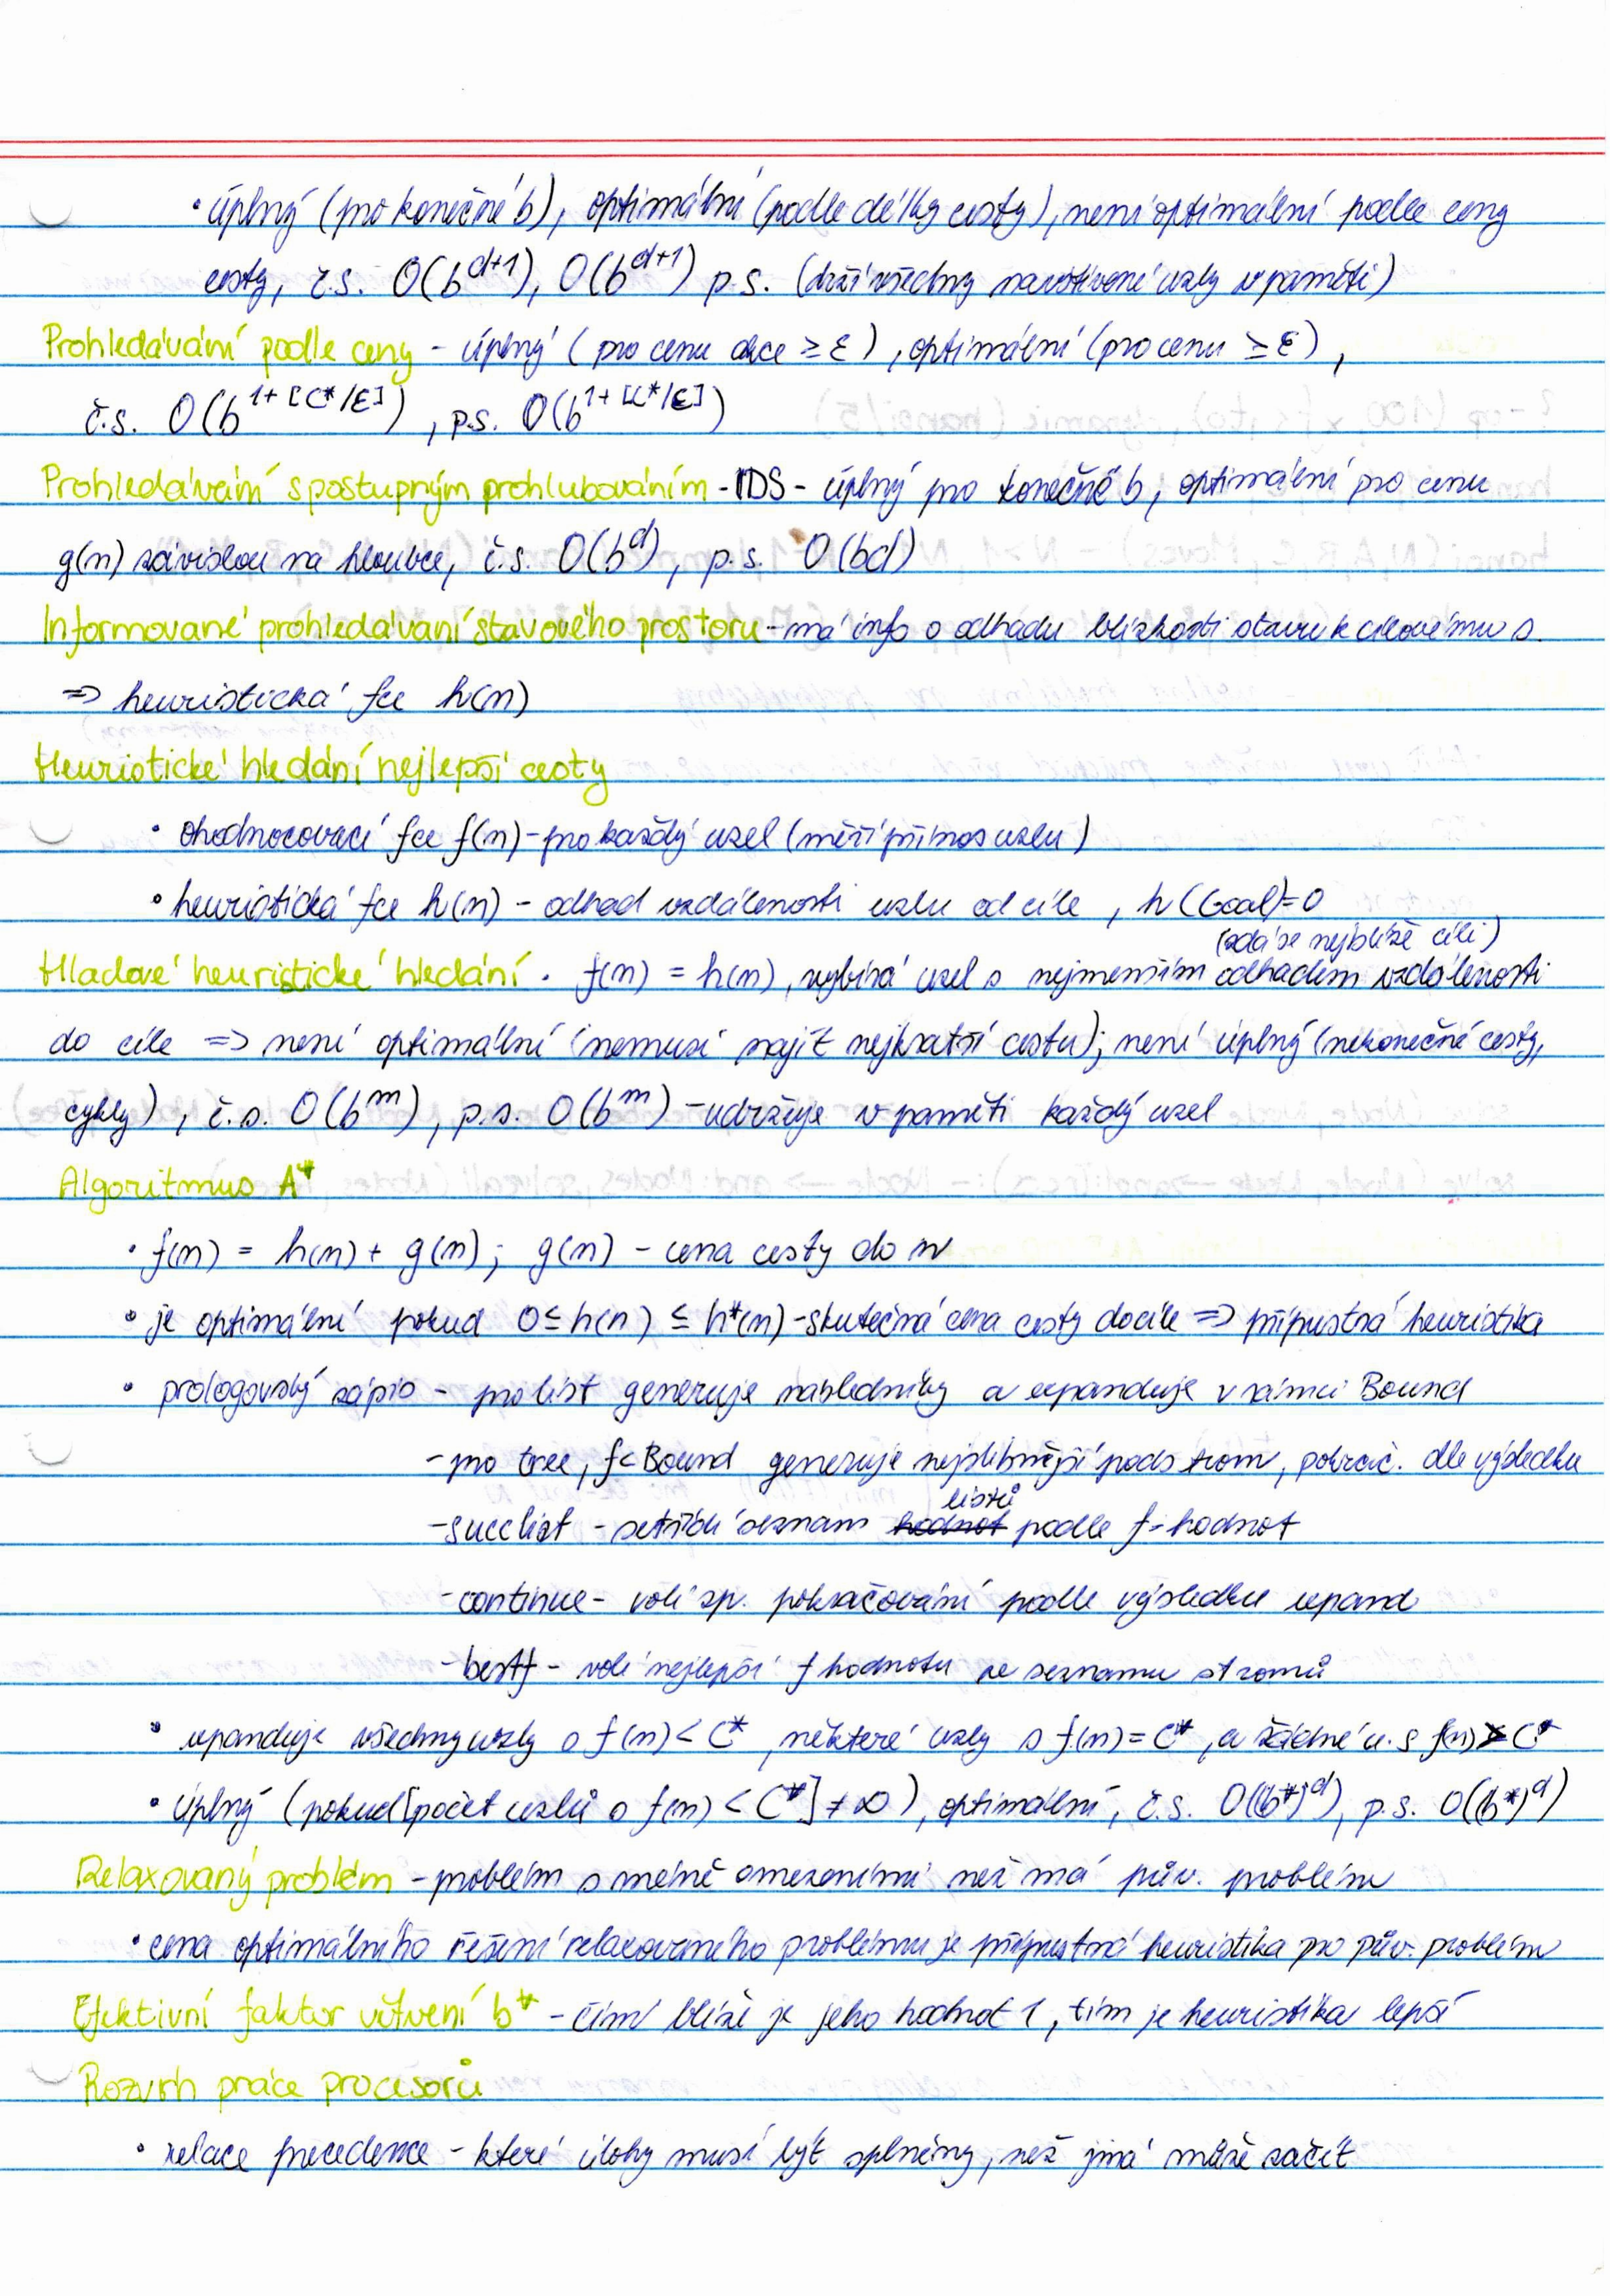 • úplný (pro konečné b), optimální (podle délky cesty), není optimální podle ceny
cesty, č.s. O(b^(d+1)), O(b^(d+1)) p.s. (drží všechny navštívené uzly v paměti)
Prohledávání podle ceny - úplný (pro cenu akce ≥ ε), optimální (pro cenu ≥ ε),
č.s. O(b^(1+[C*/ε])), p.s. O(b^(1+[C*/ε]))
Prohledávání s postupným prohlubováním - IDS - úplný pro konečné b, optimální pro cenu
g(n) závislou na hloubce, č.s. O(b^d), p.s. O(bd)
Informované prohledávaní stavového prostoru - má info o odhadu blízkosti stavu k cílovému s.
=> heuristická fce h(n)
Heuristické hledání nejlepší cesty
• ohodnocovací fce f(n) - pro každý uzel (měří přínos uzlu)
• heuristická fce h(n) - odhad vzdálenosti uzlu od cíle, h(Goal)=0
(zdá se nejblíže cíli)
Hladové heuristické hledání • f(n) = h(n), vybírá uzel s nejmenším odhadem vzdálenosti
do cíle => není optimální (nemusí najít nejkratší cestu); není úplný (nekonečné cesty,
cykly), č.s. O(b^m), p.s. O(b^m) - udržuje v paměti každý uzel
Algoritmus A*
• f(n) = h(n) + g(n); g(n) - cena cesty do n
• je optimální pokud 0 ≤ h(n) ≤ h*(n) - skutečná cena cesty do cíle => přípustná heuristika
• prologovský zápis - pro list generuje následníky a expanduje v rámci Bound
- pro tree, f<Bound generuje nejslibnější podstrom, pokrač. dle výsledku
listů
- succlist - setřídí seznam hodnot podle f-hodnot
- continue - volí zp. pokračování podle výsledku expand
- bestf - volí nejlepší f hodnotu ze seznamu stromů
• expanduje všechny uzly s f(n) < C*, některé uzly s f(n) = C*, a žádné u. s f(n) > C*
• úplný (pokud [počet uzlů s f(n) < C*] ≠ ∞), optimální, č.s. O((b*)^d), p.s. O((b*)^d)
Relaxovaný problém - problém s méně omezeními než má pův. problém
• cena optimálního řešení relaxovaného problému je přípustná heuristika pro pův. problém
Efektivní faktor větvení b* - čím blíže je jeho hodnot 1, tím je heuristika lepší
Rozvrh práce procesorů
• relace precedence - které úlohy musí být splněny, než jiná může začít